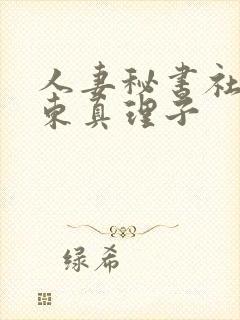 人妻秘书社
东真理子
绿希